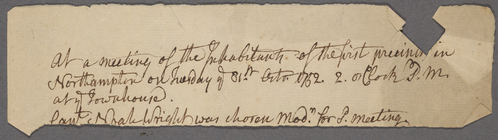 At a meeting of the Inhabitants of the first precinct in
Northampton on Tuesday y 31st Octo. 1752. 2. oClock P.M.
at y Townhouse.
Noah Wright was chosen Modr. for s. meeting